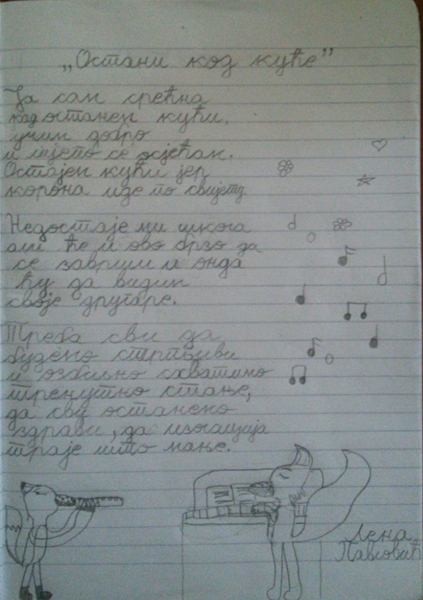 „Остани код куће”
Ја сам срећна
кад останем кући.
учим добро
и лијепо се осјећам.
Остајем кући јер
корона иде по свијету.
Недостаје ми школа
али ће и ово брзо да
се заврши и онда
ћу да видим
своје другаре.
Треба сви да
будемо стрпљиви
и озбиљно схватимо
тренутно стање,
да сви останемо
здрави, да изолација
траје што мање.
Лена
Павловић